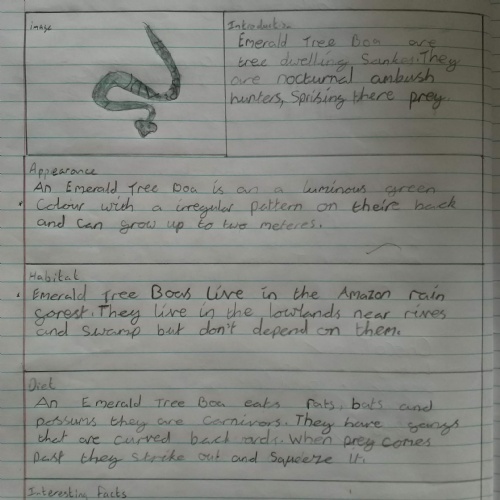 image
Introduction
Emerald Tree Boa are
tree dwelling Sankes. They
are nocturnal ambush
hunters, Sprising there prey.
Appearance
An Emerald Tree Boa is an a luminous green
Colour with a irregular pattern on theire back
and can grow up to two meteres.
Habitat
Emerald Tree Boas live in the Amazon rain
forest. They live in the lowlands near rives
and swamp but don't depend on them.
Diet
An Emerald Tree Boa eats rats, bats and
possums they are carnivors. They have gangs
that are curved back ards. When prey comes
past they strike out and Squeeze it.
Interesting Facts